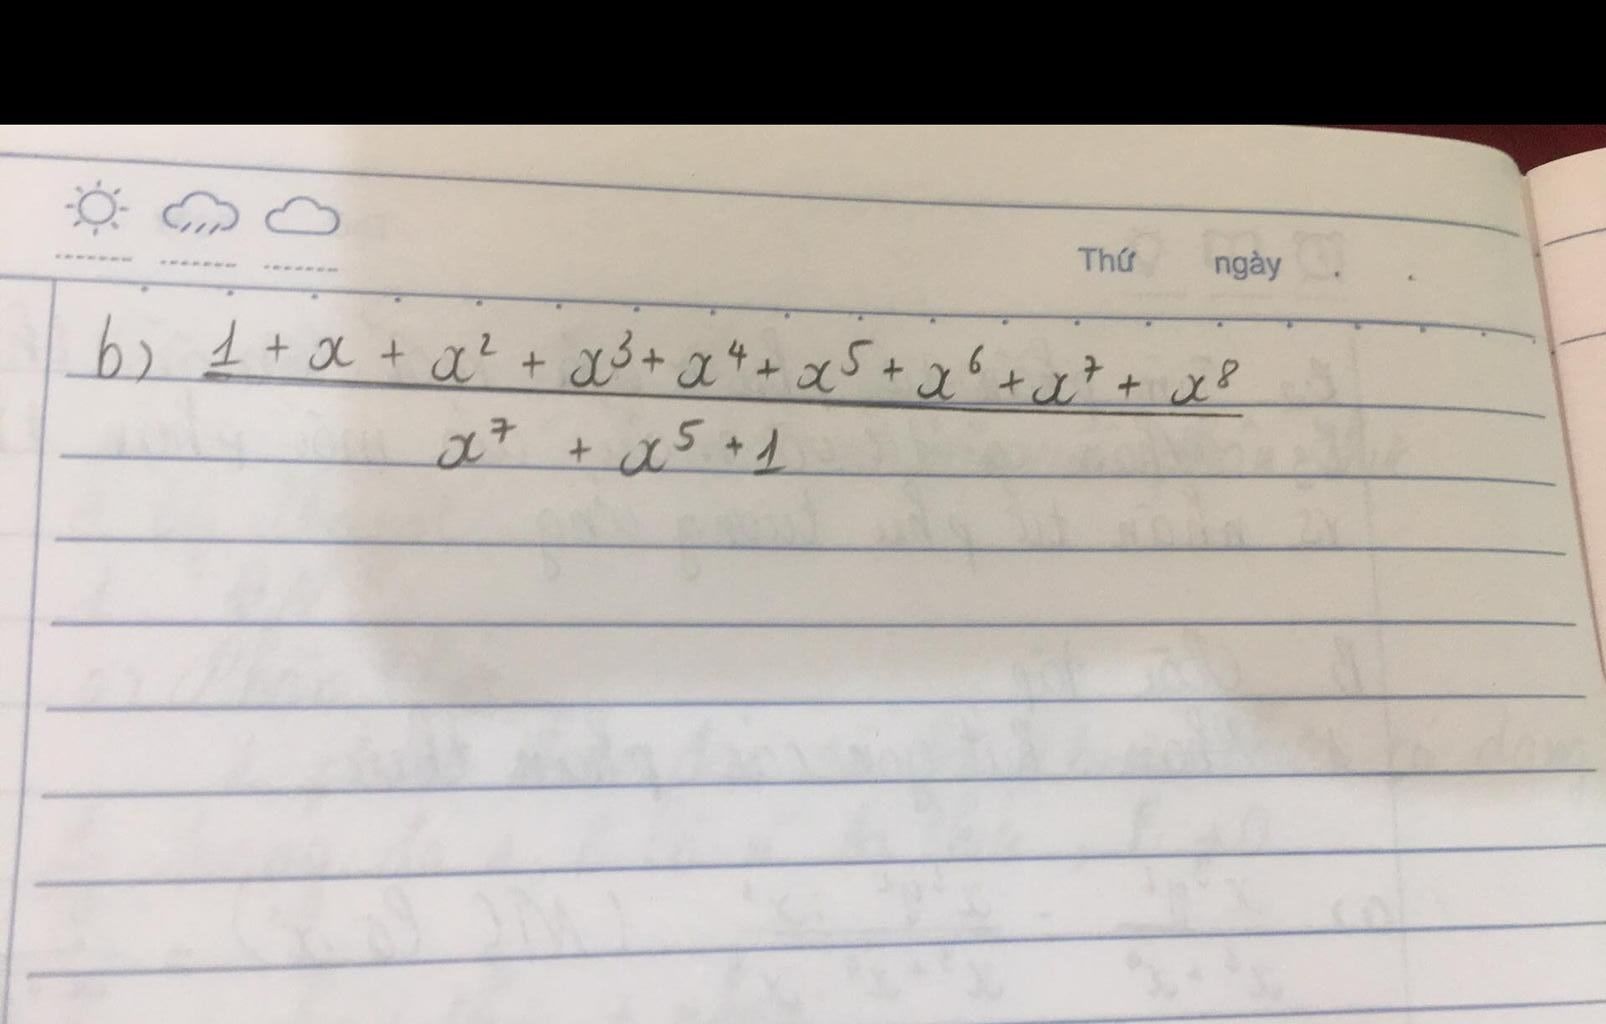 Thứ ngày . .
b) 1 + x + x² + x³ + x⁴ + x⁵ + x⁶ + x⁷ + x⁸
x⁷ + x⁵ + 1